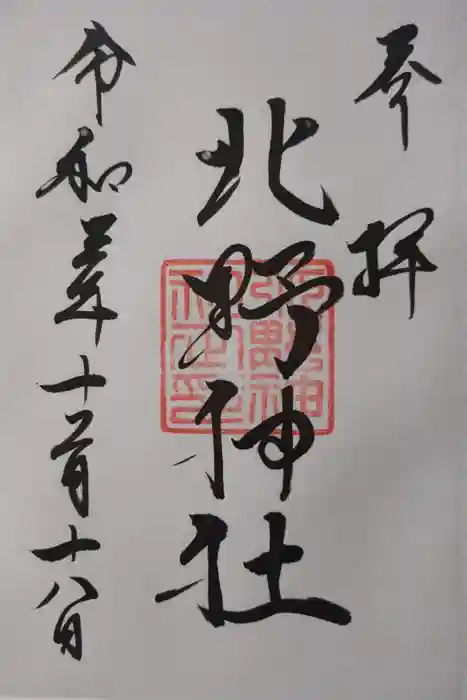 奉拝
北野神社
令和三年十一月十八日